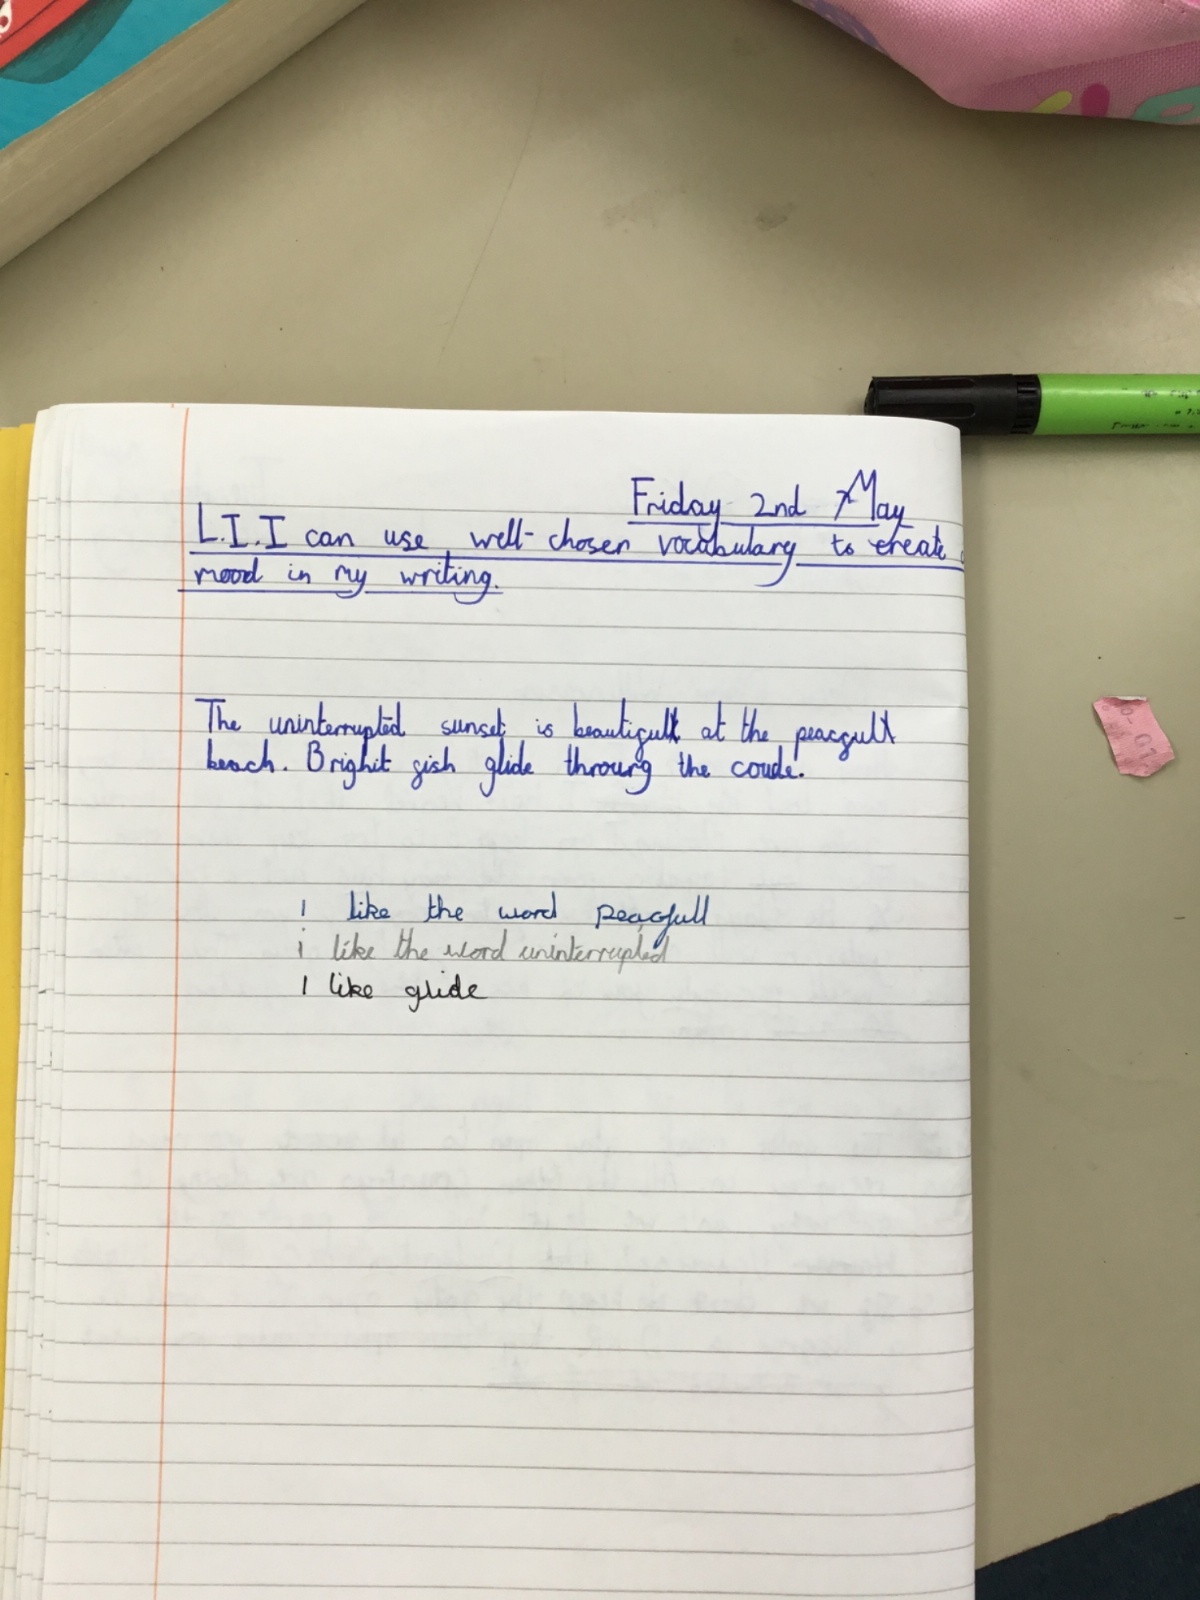 Friday 2nd May
L.I. I can use well-chosen vocabulary to create
mood in my writing.
The uninterrupted sunset is beautigull at the peacgull
beach. Brighit gish glide througg the coude.
I like the word peacgull
i like the word uninterrupted
I like glide